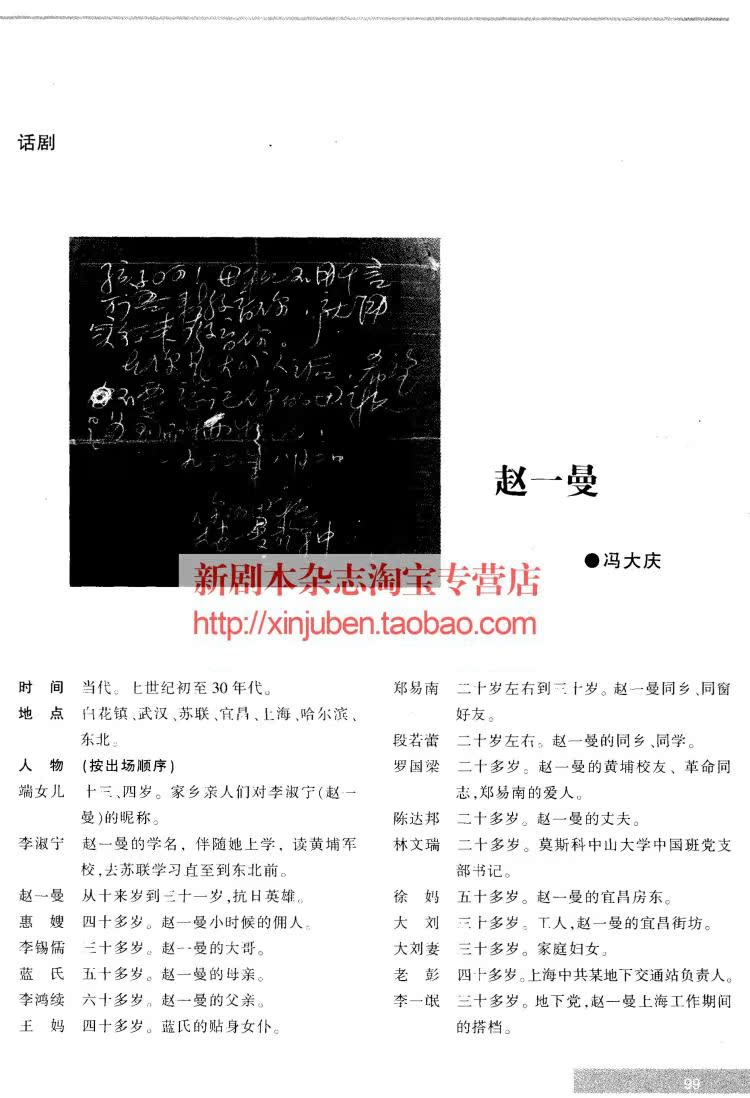 话剧
孩子啊！母亲不用千言
万语来教育你，就用
实行来教育你。
在你长大成人之后，希望
不要忘记你的母亲
赵一曼
●冯大庆
新剧本杂志淘宝专营店
http://xinjuben.taobao.com
时 间 当代。上世纪初至30年代。
地 点 白花镇、武汉、苏联、宜昌、上海、哈尔滨、
东北。
人 物 (按出场顺序)
端女儿 十三、四岁。家乡亲人们对李淑宁(赵一
曼)的昵称。
李淑宁 赵一曼的学名，伴随她上学，读黄埔军
校,去苏联学习直至到东北前。
赵一曼 从十来岁到三十一岁,抗日英雄。
惠 嫂 四十多岁。赵一曼小时候的佣人。
李锡儒 三十多岁。赵一曼的大哥。
蓝 氏 五十多岁。赵一曼的母亲。
李鸿续 六十多岁。赵一曼的父亲。
王 妈 四十多岁。蓝氏的贴身女仆。
郑易南 二十岁左右到三十岁。赵一曼同乡、同窗
好友。
段若蕾 二十岁左右。赵一曼的同乡、同学。
罗国梁 二十多岁。赵一曼的黄埔校友、革命同
志,郑易南的爱人。
陈达邦 二十多岁。赵一曼的丈夫。
林文瑞 二十多岁。莫斯科中山大学中国班党支
部书记。
徐 妈 五十多岁。赵一曼的宜昌房东。
大 刘 三十多岁。工人,赵一曼的宜昌街坊。
大刘妻 三十多岁。家庭妇女。
老 彭 四十多岁。上海中共某地下交通站负责人。
李一氓 三十多岁。地下党,赵一曼上海工作期间
的搭档。
99